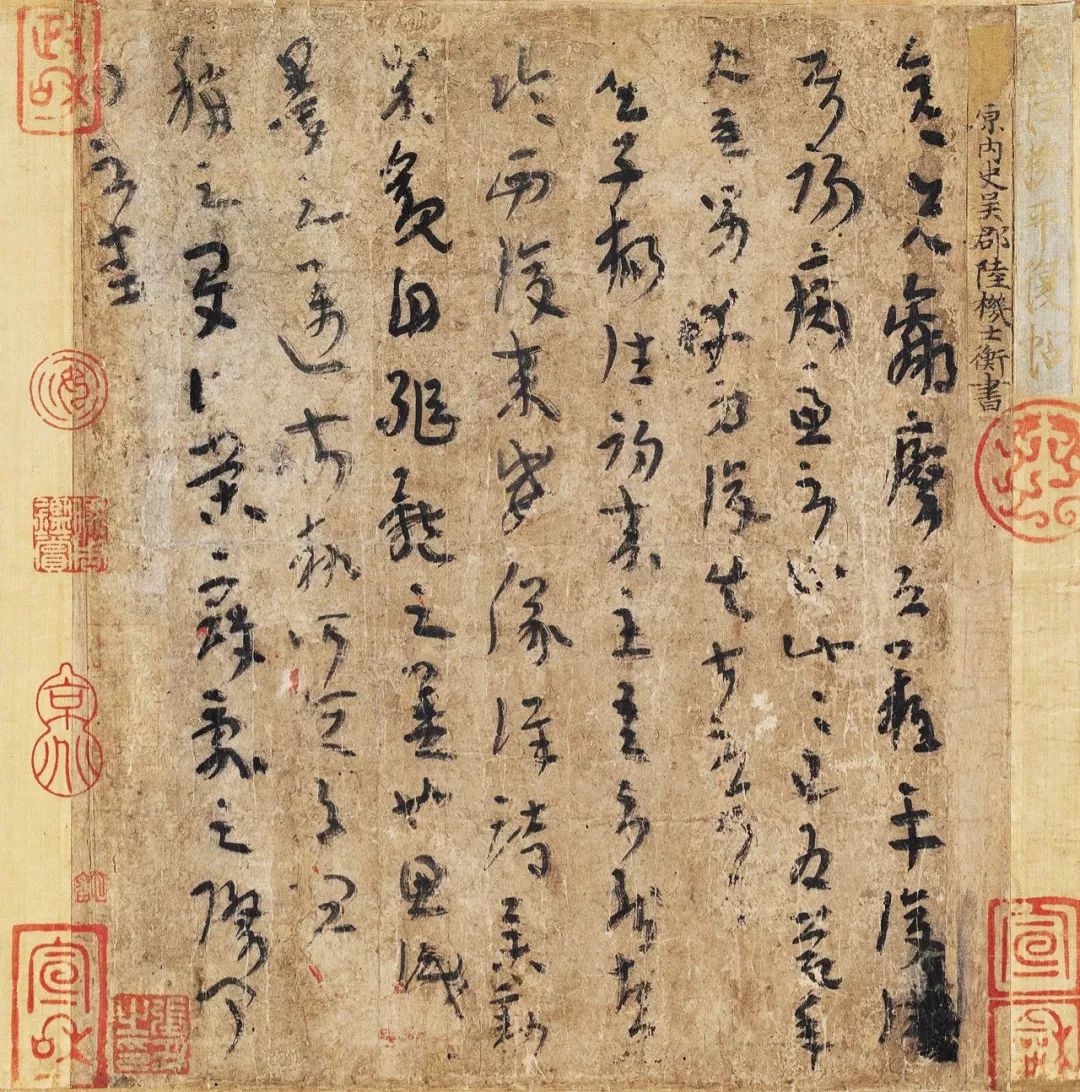 陸機平復帖
原内史吳郡陸機士衡書
彦先羸瘵恐難平復往
初病慮不止此此已為慶承
使唯男幸為復失前憂耳
吳子楊往初來主吾不能盡
臨西復來威儀詳跱舉動
成觀自軀體之美也思識
量之邁前執所恒有宜
稱之夏伯榮寇亂之際聞
問不悉
政和
宣和
宣
和